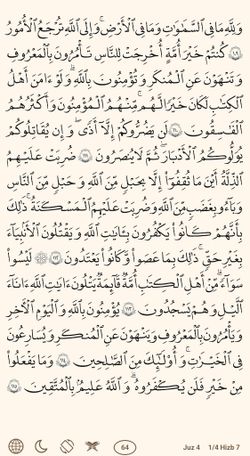 وَلِلَّهِ مَا فِى ٱلسَّمَـٰوَٰتِ وَمَا فِى ٱلْأَرْضِ ۚ وَإِلَى ٱللَّهِ تُرْجَعُ ٱلْأُمُورُ
١٠٩ كُنتُمْ خَيْرَ أُمَّةٍ أُخْرِجَتْ لِلنَّاسِ تَأْمُرُونَ بِٱلْمَعْرُوفِ
وَتَنْهَوْنَ عَنِ ٱلْمُنكَرِ وَتُؤْمِنُونَ بِٱللَّهِ ۗ وَلَوْ ءَامَنَ أَهْلُ
ٱلْكِتَـٰبِ لَكَانَ خَيْرًا لَّهُم ۚ مِّنْهُمُ ٱلْمُؤْمِنُونَ وَأَكْثَرُهُمُ
ٱلْفَـٰسِقُونَ ١١٠ لَن يَضُرُّوكُمْ إِلَّآ أَذًى ۖ وَإِن يُقَـٰتِلُوكُمْ
يُوَلُّوكُمُ ٱلْأَدْبَارَ ثُمَّ لَا يُنصَرُونَ ١١١ ضُرِبَتْ عَلَيْهِمُ
ٱلذِّلَّةُ أَيْنَ مَا ثُقِفُوٓا۟ إِلَّا بِحَبْلٍ مِّنَ ٱللَّهِ وَحَبْلٍ مِّنَ ٱلنَّاسِ
وَبَآءُو بِغَضَبٍ مِّنَ ٱللَّهِ وَضُرِبَتْ عَلَيْهِمُ ٱلْمَسْكَنَةُ ۚ ذَٰلِكَ
بِأَنَّهُمْ كَانُوا۟ يَكْفُرُونَ بِـَٔايَـٰتِ ٱللَّهِ وَيَقْتُلُونَ ٱلْأَنۢبِيَآءَ
بِغَيْرِ حَقٍّ ۚ ذَٰلِكَ بِمَا عَصَوا۟ وَّكَانُوا۟ يَعْتَدُونَ ١١٢ ۞ لَيْسُوا۟
سَوَآءً ۗ مِّنْ أَهْلِ ٱلْكِتَـٰبِ أُمَّةٌ قَآئِمَةٌ يَتْلُونَ ءَايَـٰتِ ٱللَّهِ ءَانَآءَ
ٱلَّيْلِ وَهُمْ يَسْجُدُونَ ١١٣ يُؤْمِنُونَ بِٱللَّهِ وَٱلْيَوْمِ ٱلْـَٔاخِرِ
وَيَأْمُرُونَ بِٱلْمَعْرُوفِ وَيَنْهَوْنَ عَنِ ٱلْمُنكَرِ وَيُسَـٰرِعُونَ
فِى ٱلْخَيْرَٰتِ وَأُو۟لَـٰٓئِكَ مِنَ ٱلصَّـٰلِحِينَ ١١٤ وَمَا يَفْعَلُوا۟
مِنْ خَيْرٍ فَلَن يُكْفَرُوهُ ۗ وَٱللَّهُ عَلِيمٌۢ بِٱلْمُتَّقِينَ ١١٥
64 Juz 4 1/4 Hizb 7